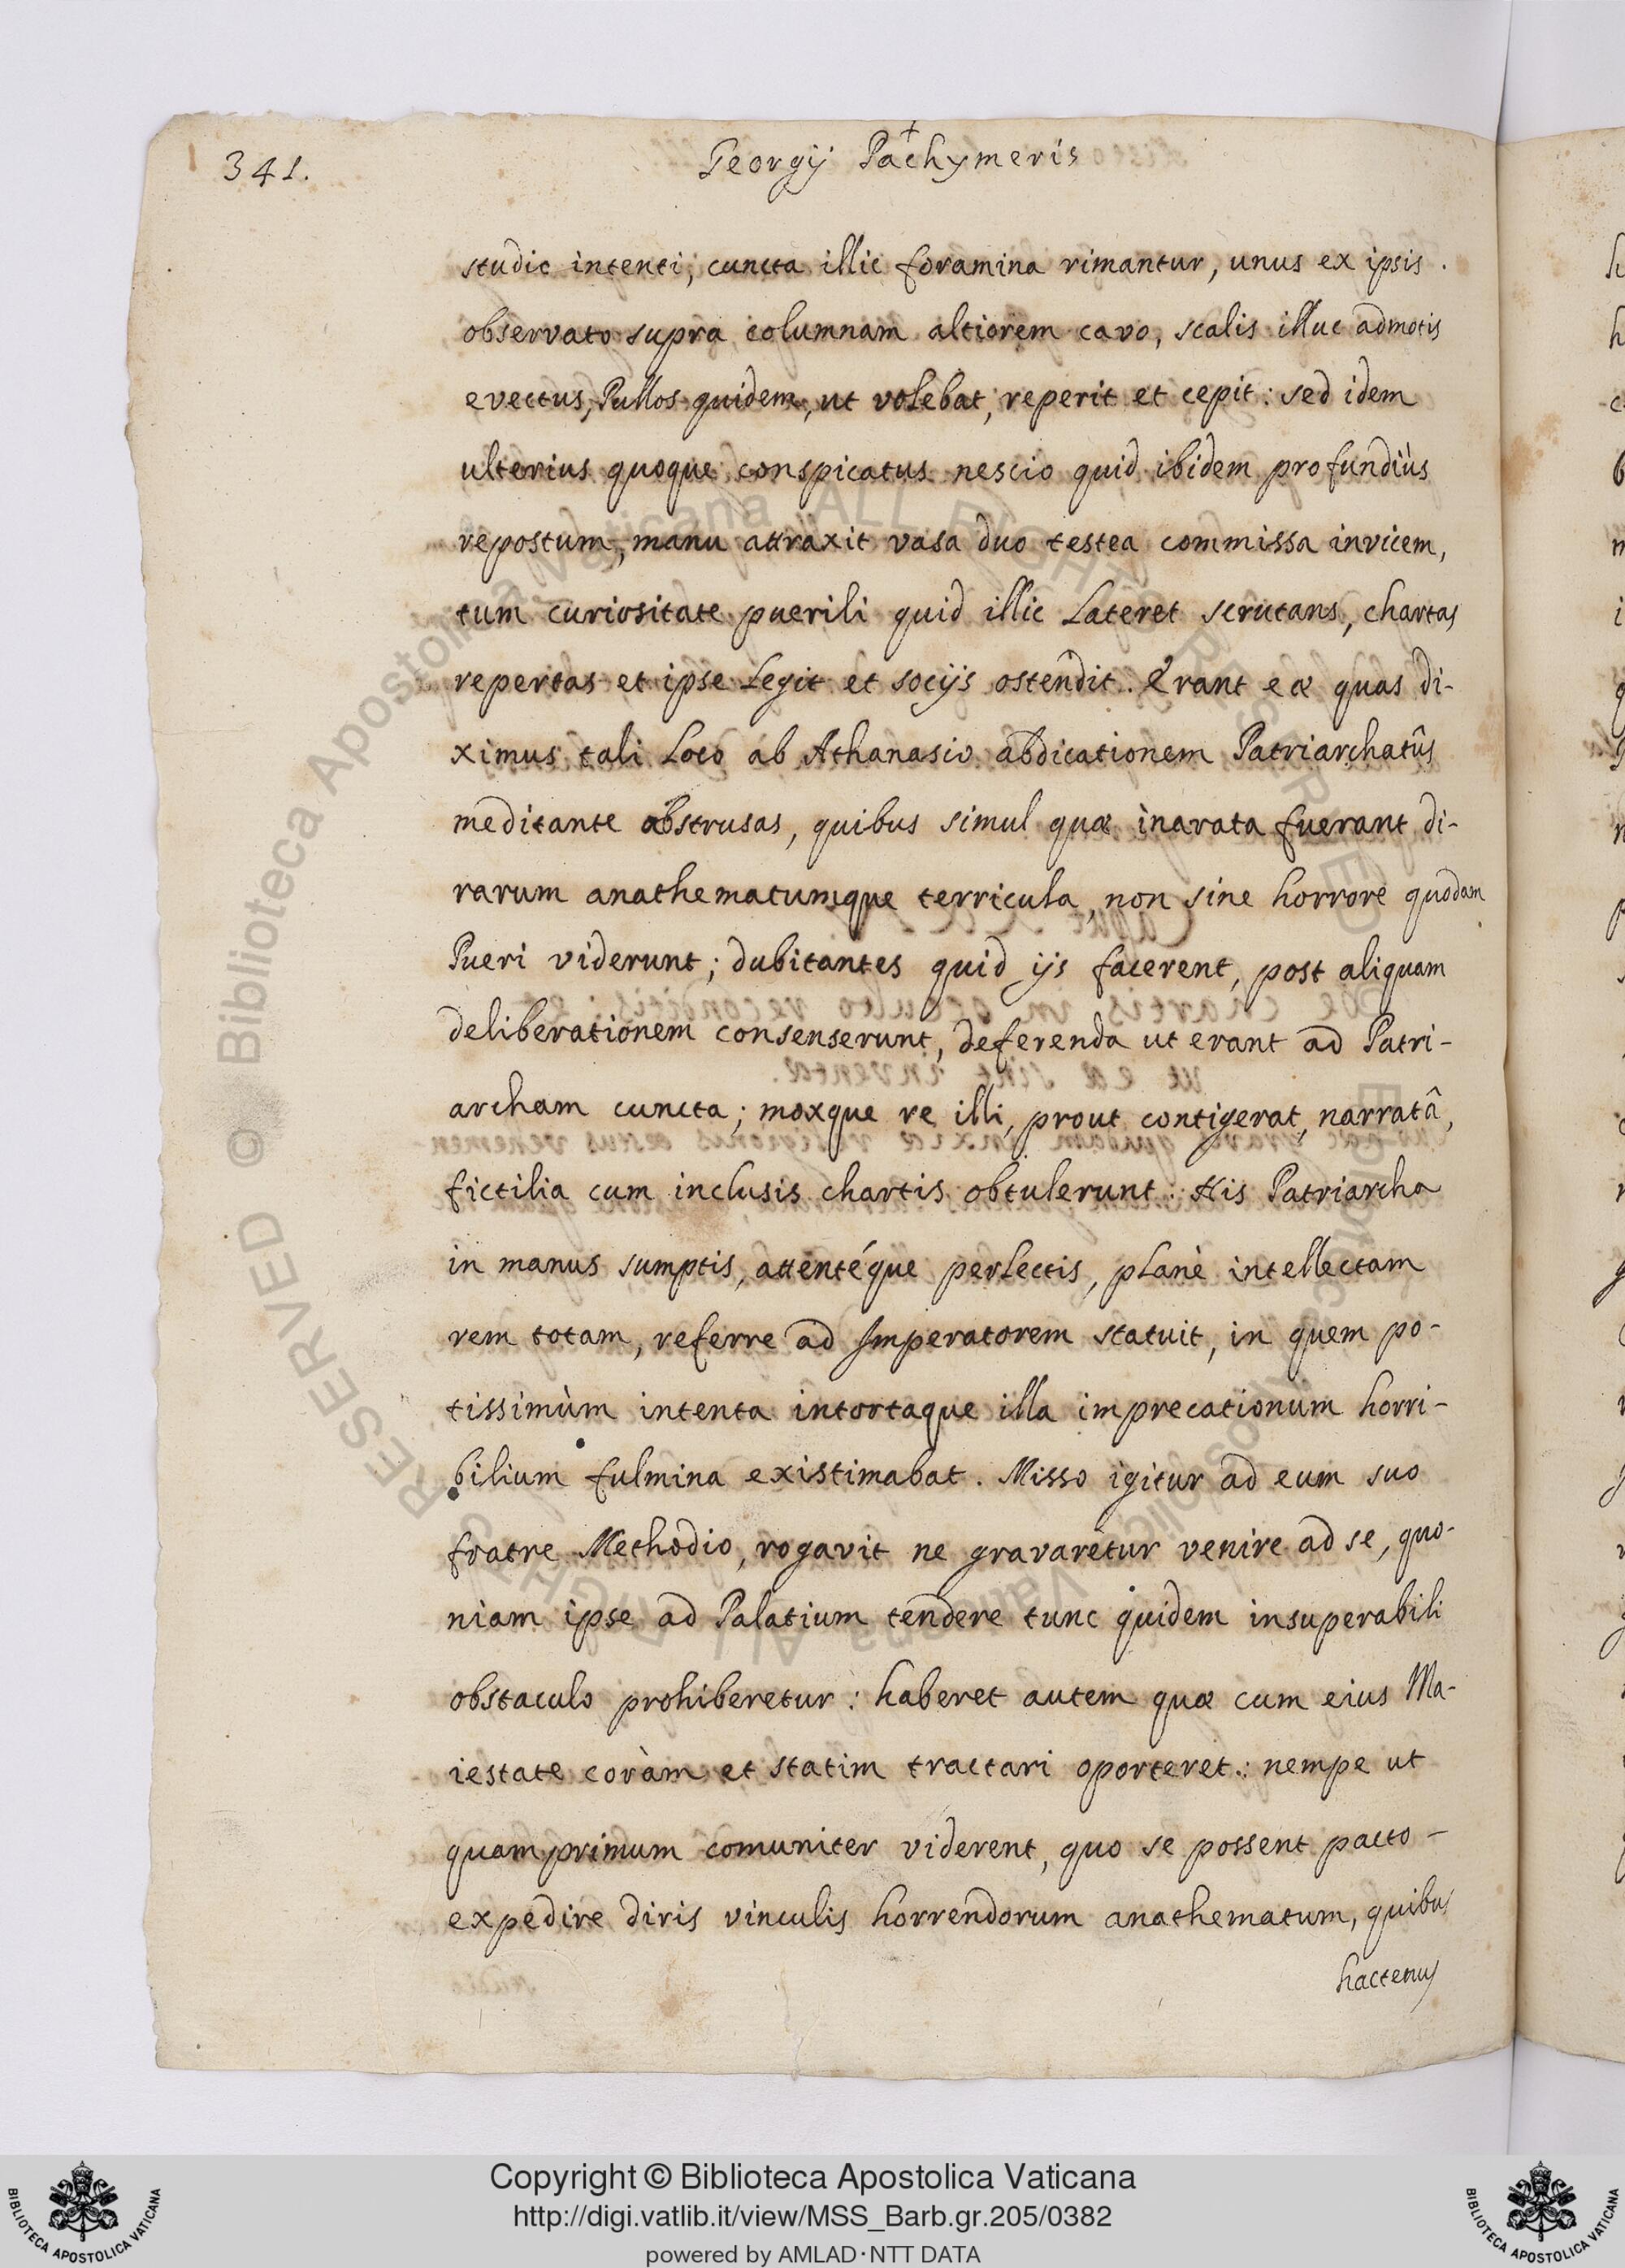 341.
Georgij Pachymeris
studio intenti; cuncta illic foramina rimantur, unus ex ipsis.
observato supra columnam altiorem cavo, scalis illuc admotis
evectus, Pullos quidem, ut volebat, reperit et cepit: sed idem
ulterius quoque conspicatus nescio quid ibidem profundiùs
repostum, manu attraxit vasa duo testea commissa invicem,
tum curiositate puerili quid illic Lateret scrutans, chartas
repertas et ipse Legit et socijs ostendit. Erant eæ quas di-
ximus tali Loco ab Athanasio abdicationem Patriarchatûs
meditante abstrusas, quibus simul quæ inarata fuerant di-
rarum anathematumque terricula, non sine horrore quodam
Pueri viderunt; dubitantes quid ijs facerent, post aliquam
deliberationem consenserunt, deferenda ut erant ad Patri-
archam cuncta; moxque re illi, prout contigerat, narratâ,
fictilia cum inclusis chartis obtulerunt. His Patriarcha
in manus sumptis, attentéque perlectis, planè intellectam
rem totam, referre ad Imperatorem statuit, in quem po-
tissimùm intenta intortaque illa imprecationum horri-
bilium fulmina existimabat. Misso igitur ad eum suo
fratre Methodio, rogavit ne gravaretur venire ad se, quo-
niam ipse ad Palatium tendere tunc quidem insuperabili
obstaculo prohiberetur: haberet autem quæ cum eius Ma-
iestate coràm et statim tractari oporteret: nempe ut
quamprimum comuniter viderent, quo se possent pacto-
expedire diris vinculis horrendorum anathematum, quibus
hactenus
Copyright © Biblioteca Apostolica Vaticana
http://digi.vatlib.it/view/MSS_Barb.gr.205/0382
powered by AMLAD·NTT DATA
BIBLIOTECA APOSTOLICA VATICANA
BIBLIOTECA APOSTOLICA VATICANA
© Biblioteca Apostolica Vaticana ALL RIGHTS RESERVED